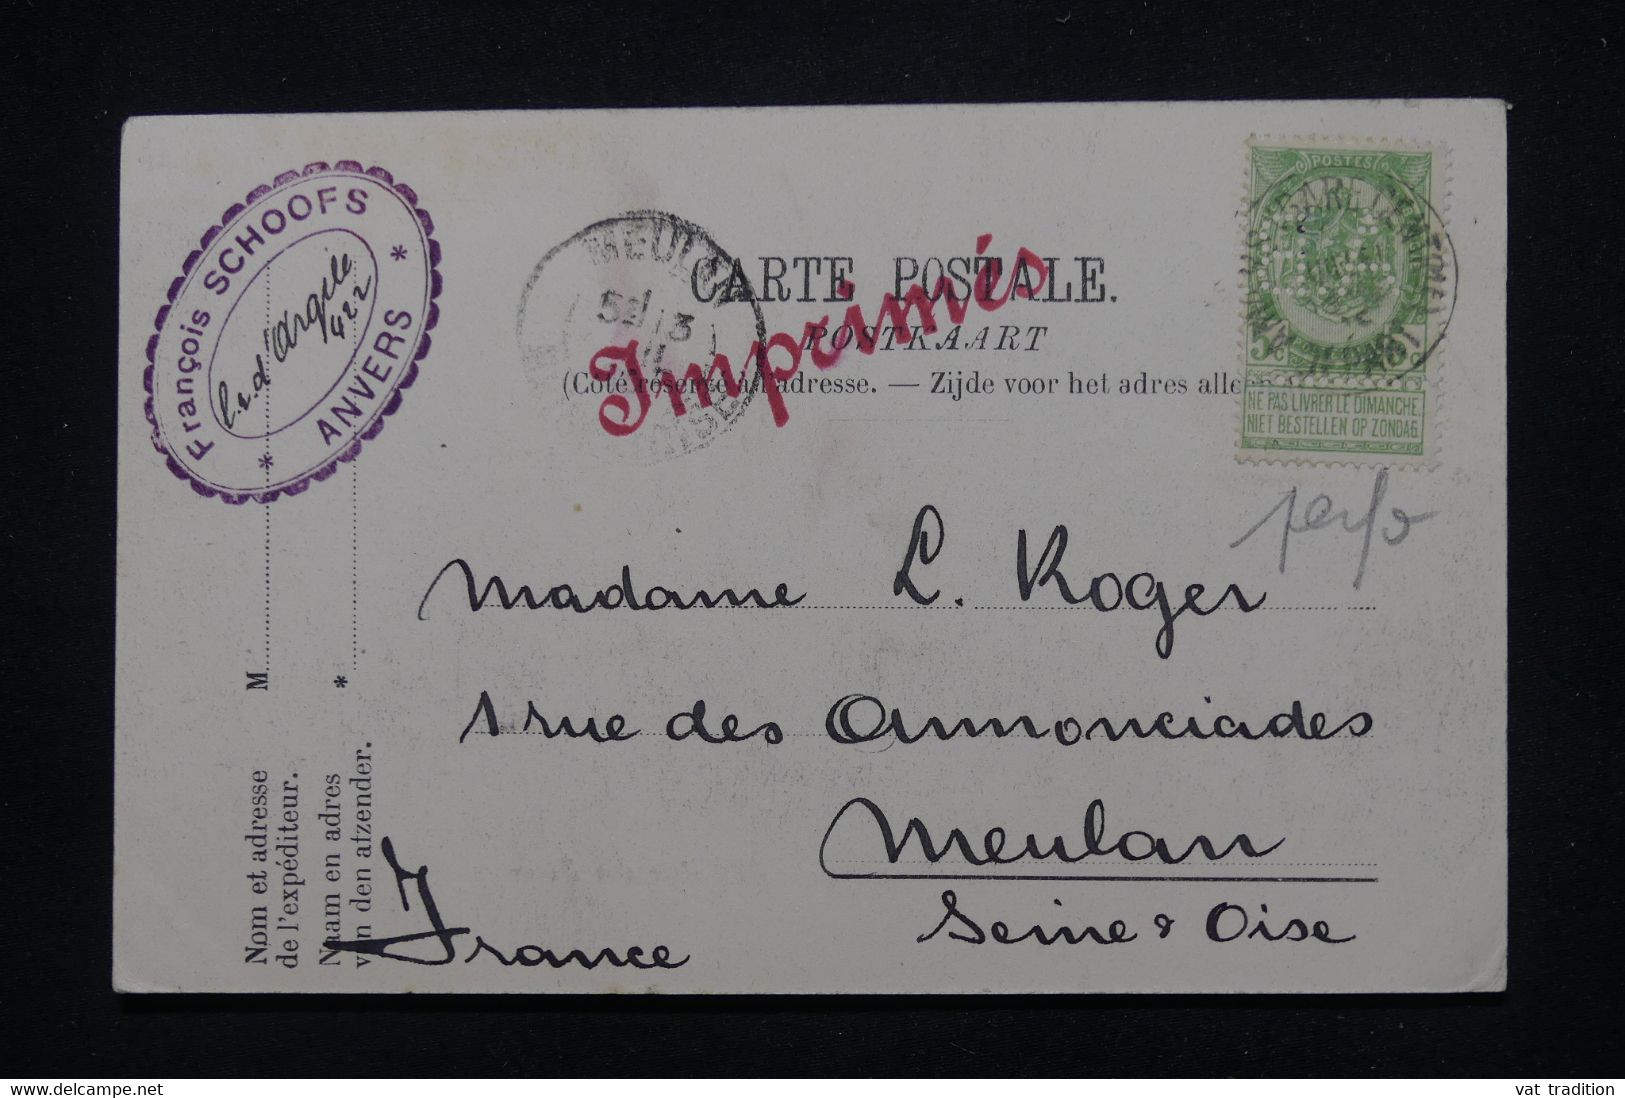 François SCHOOFS
l.r.d'Argile
422
* ANVERS *
MEULAN
CARTE POSTALE.
POSTKAART
Imprimés
(Côté réservé à l'adresse. — Zijde voor het adres alleen
POSTES
5c
NE PAS LIVRER LE DIMANCHE
NIET BESTELLEN OP ZONDAG
perfo
Madame L. Roger
1 rue des Annonciades
Meulan
Seine & Oise
France
M
*
Nom et adresse
de l'expéditeur.
Naam en adres
van den afzender.
vat tradition
delcampe.net